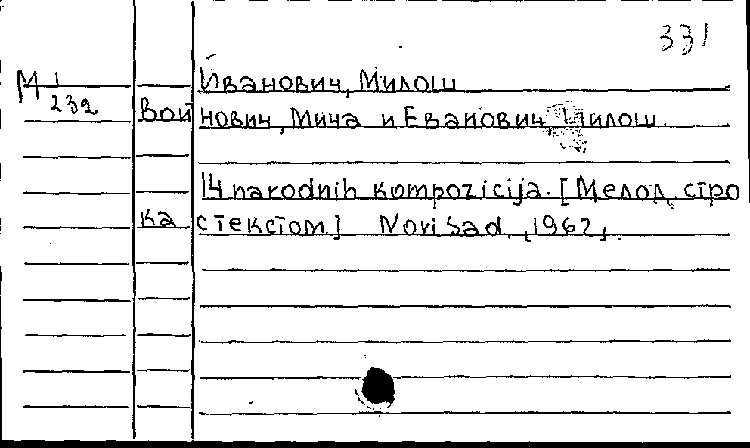 331
Иванович, Милош
М 1
232
Войнович, Мича и Еванович Милош.
14 narodnih kompozicija. [Мелод. стро
ка с текстом] Novi Sad, [1962].